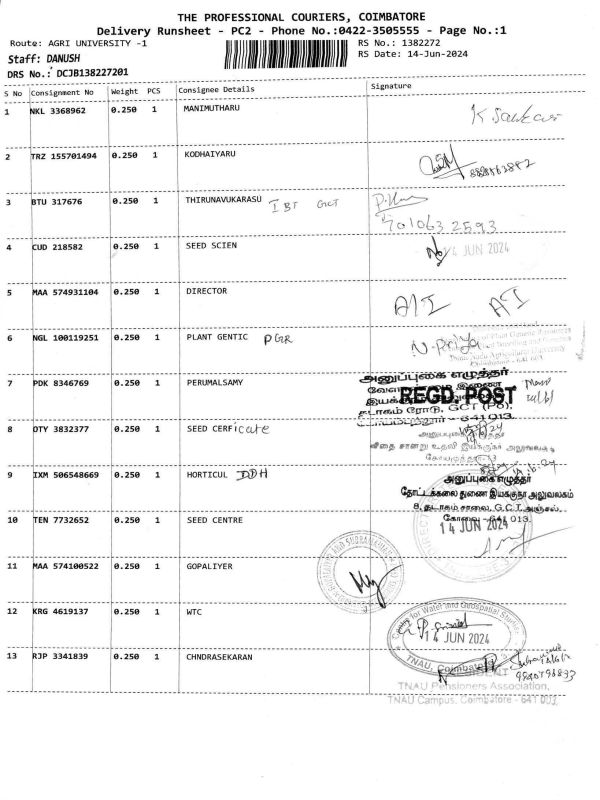 THE PROFESSIONAL COURIERS, COIMBATORE
Delivery Runsheet - PC2 - Phone No.:0422-3505555 - Page No.:1
Route: AGRI UNIVERSITY -1
RS No.: 1382272
Staff: DANUSH
RS Date: 14-Jun-2024
DRS No.: DCJB138227201
S No Consignment No Weight PCS Consignee Details Signature
1 NKL 3368962 0.250 1 MANIMUTHARU
2 TRZ 155701494 0.250 1 KODHAIYARU
3 BTU 317676 0.250 1 THIRUNAVUKARASU IBT GCT
701063 2593
4 CUD 218582 0.250 1 SEED SCIEN
14 JUN 2024
5 MAA 574931104 0.250 1 DIRECTOR
6 NGL 100119251 0.250 1 PLANT GENTIC PGR N. Priya
அனுப்புகை எழுத்தர்
7 PDK 8346769 0.250 1 PERUMALSAMY
REGD. POST
தடாகம் ரோடு, GCT (Po),
8 DTY 3832377 0.250 1 SEED CERFicate
9 IXM 506548669 0.250 1 HORTICUL DDH
அனுப்புகை எழுத்தர்
தோட்டக்கலை துணை இயக்குநர் அலுவலகம்
8, தடாகம் சாலை, G.C.T. அஞ்சல்,
கோவை - 641 013
10 TEN 7732652 0.250 1 SEED CENTRE
14 JUN 2024
11 MAA 574100522 0.250 1 GOPALIYER
12 KRG 4619137 0.250 1 WTC
Centre for Water and Geospatial Studies
14 JUN 2024
TNAU, Coimbatore
13 RJP 3341839 0.250 1 CHNDRASEKARAN
TNAU Pensioners Association,
TNAU Campus, Coimbatore - 641 003.